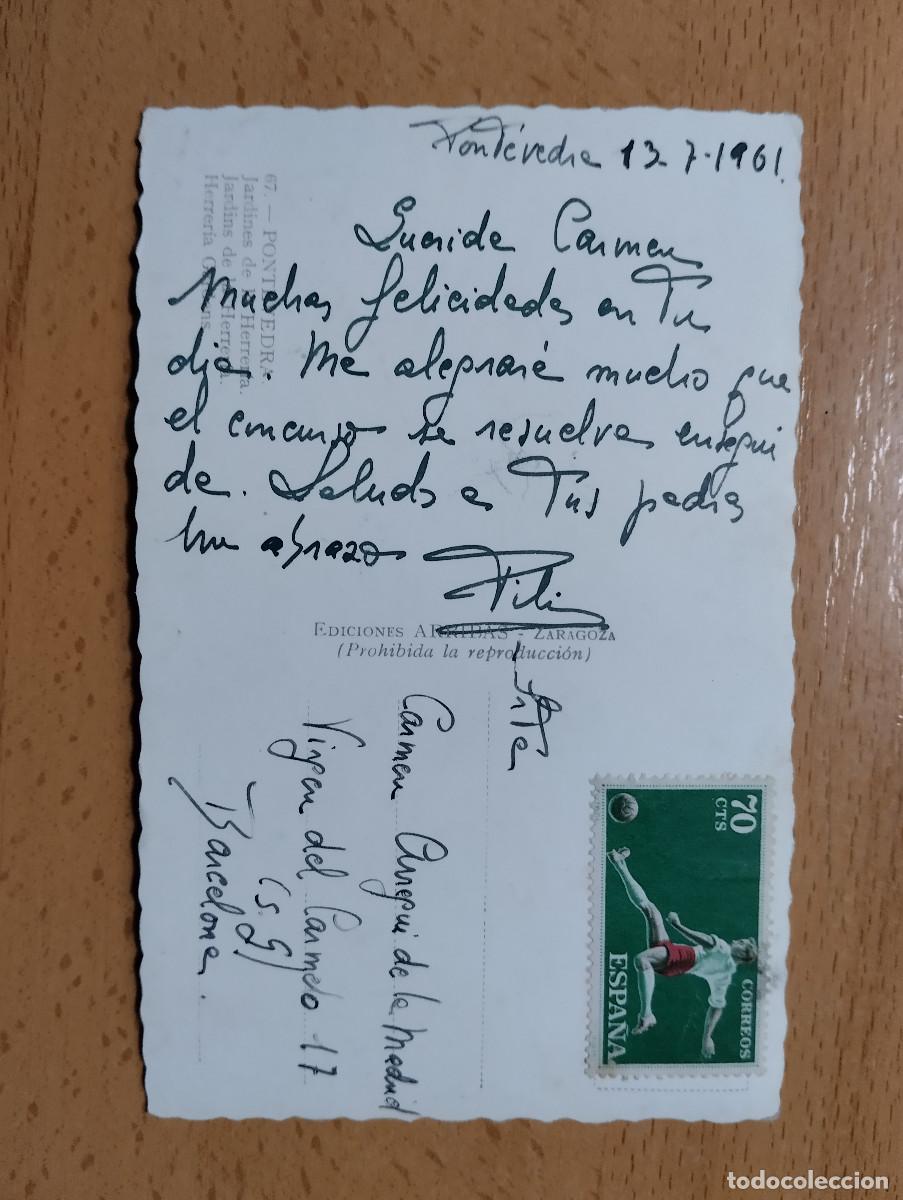 Pontevedra 13-7-1961.
Querida Carmen
Muchas felicidades en Tu
día. Me alegraré mucho que
el concurso se resuelva ensegui
da. Saludos a Tus padres
Un abrazo Pili
67. — PONTEVEDRA.
Jardines de la Herrería.
Jardins de Herrería.
Herrería
EDICIONES ARRIBAS - ZARAGOZA
(Prohibida la reproducción)
Srta
Carmen de la Madrid
Virgen del Carmelo 17
(S. G)
Barcelona.
70
CTS
CORREOS
ESPAÑA
todocoleccion